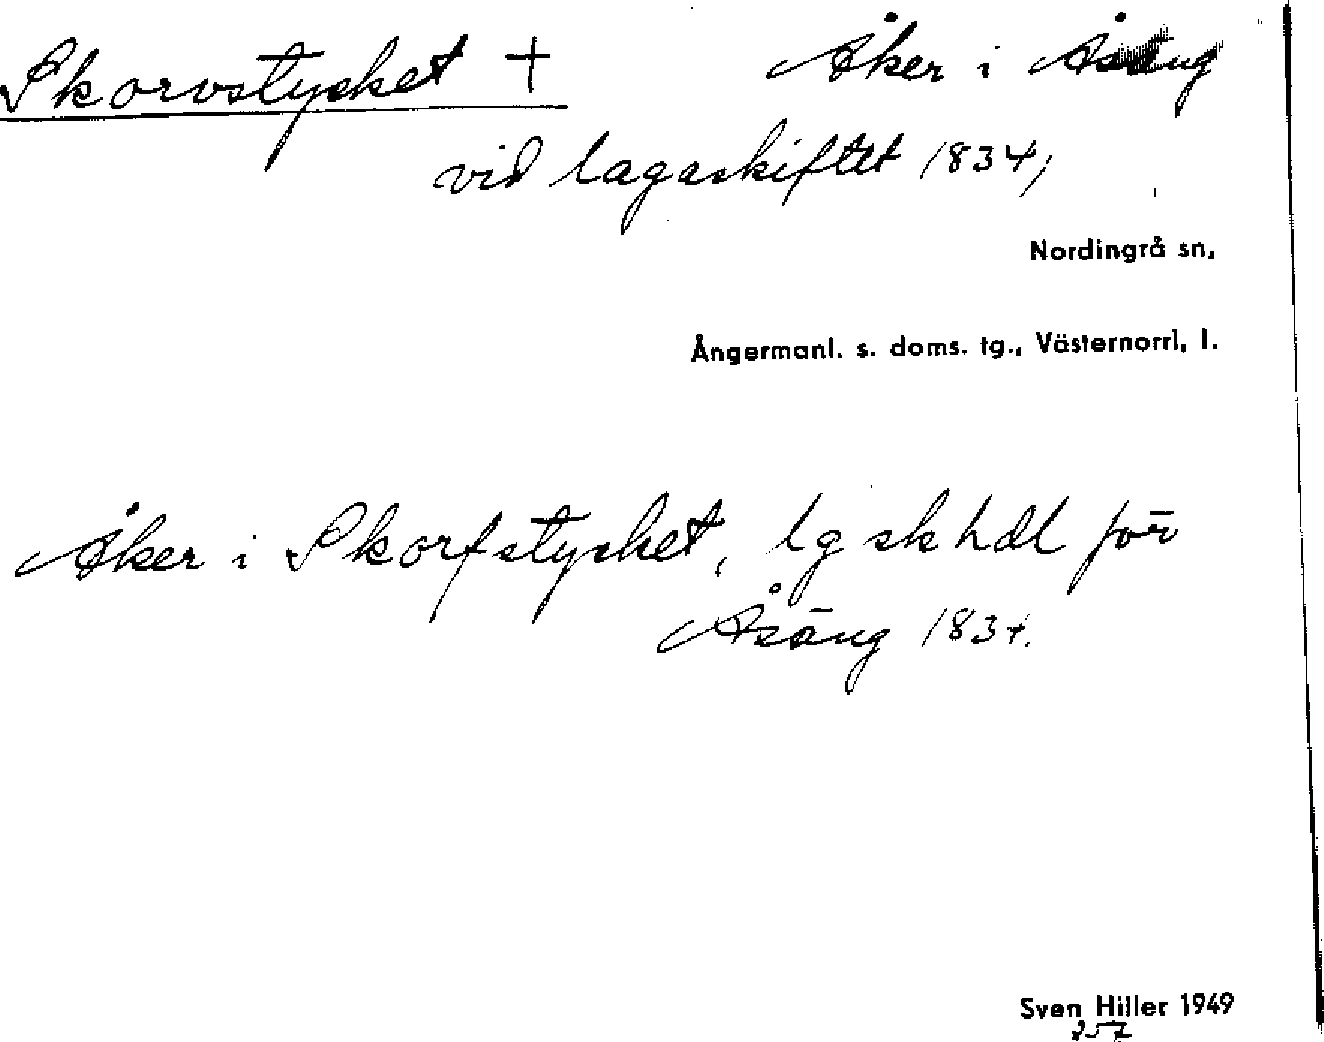 Skorvstycket + Åker i Åsäng
vid lagaskiftet 1834,
Nordingrå sn,
Ångermanl. s. doms. tg., Västernorrl, l.
Åker i Skorfstycket, lg sk hdl för
Åsäng 1834.
Sven Hiller 1949
257